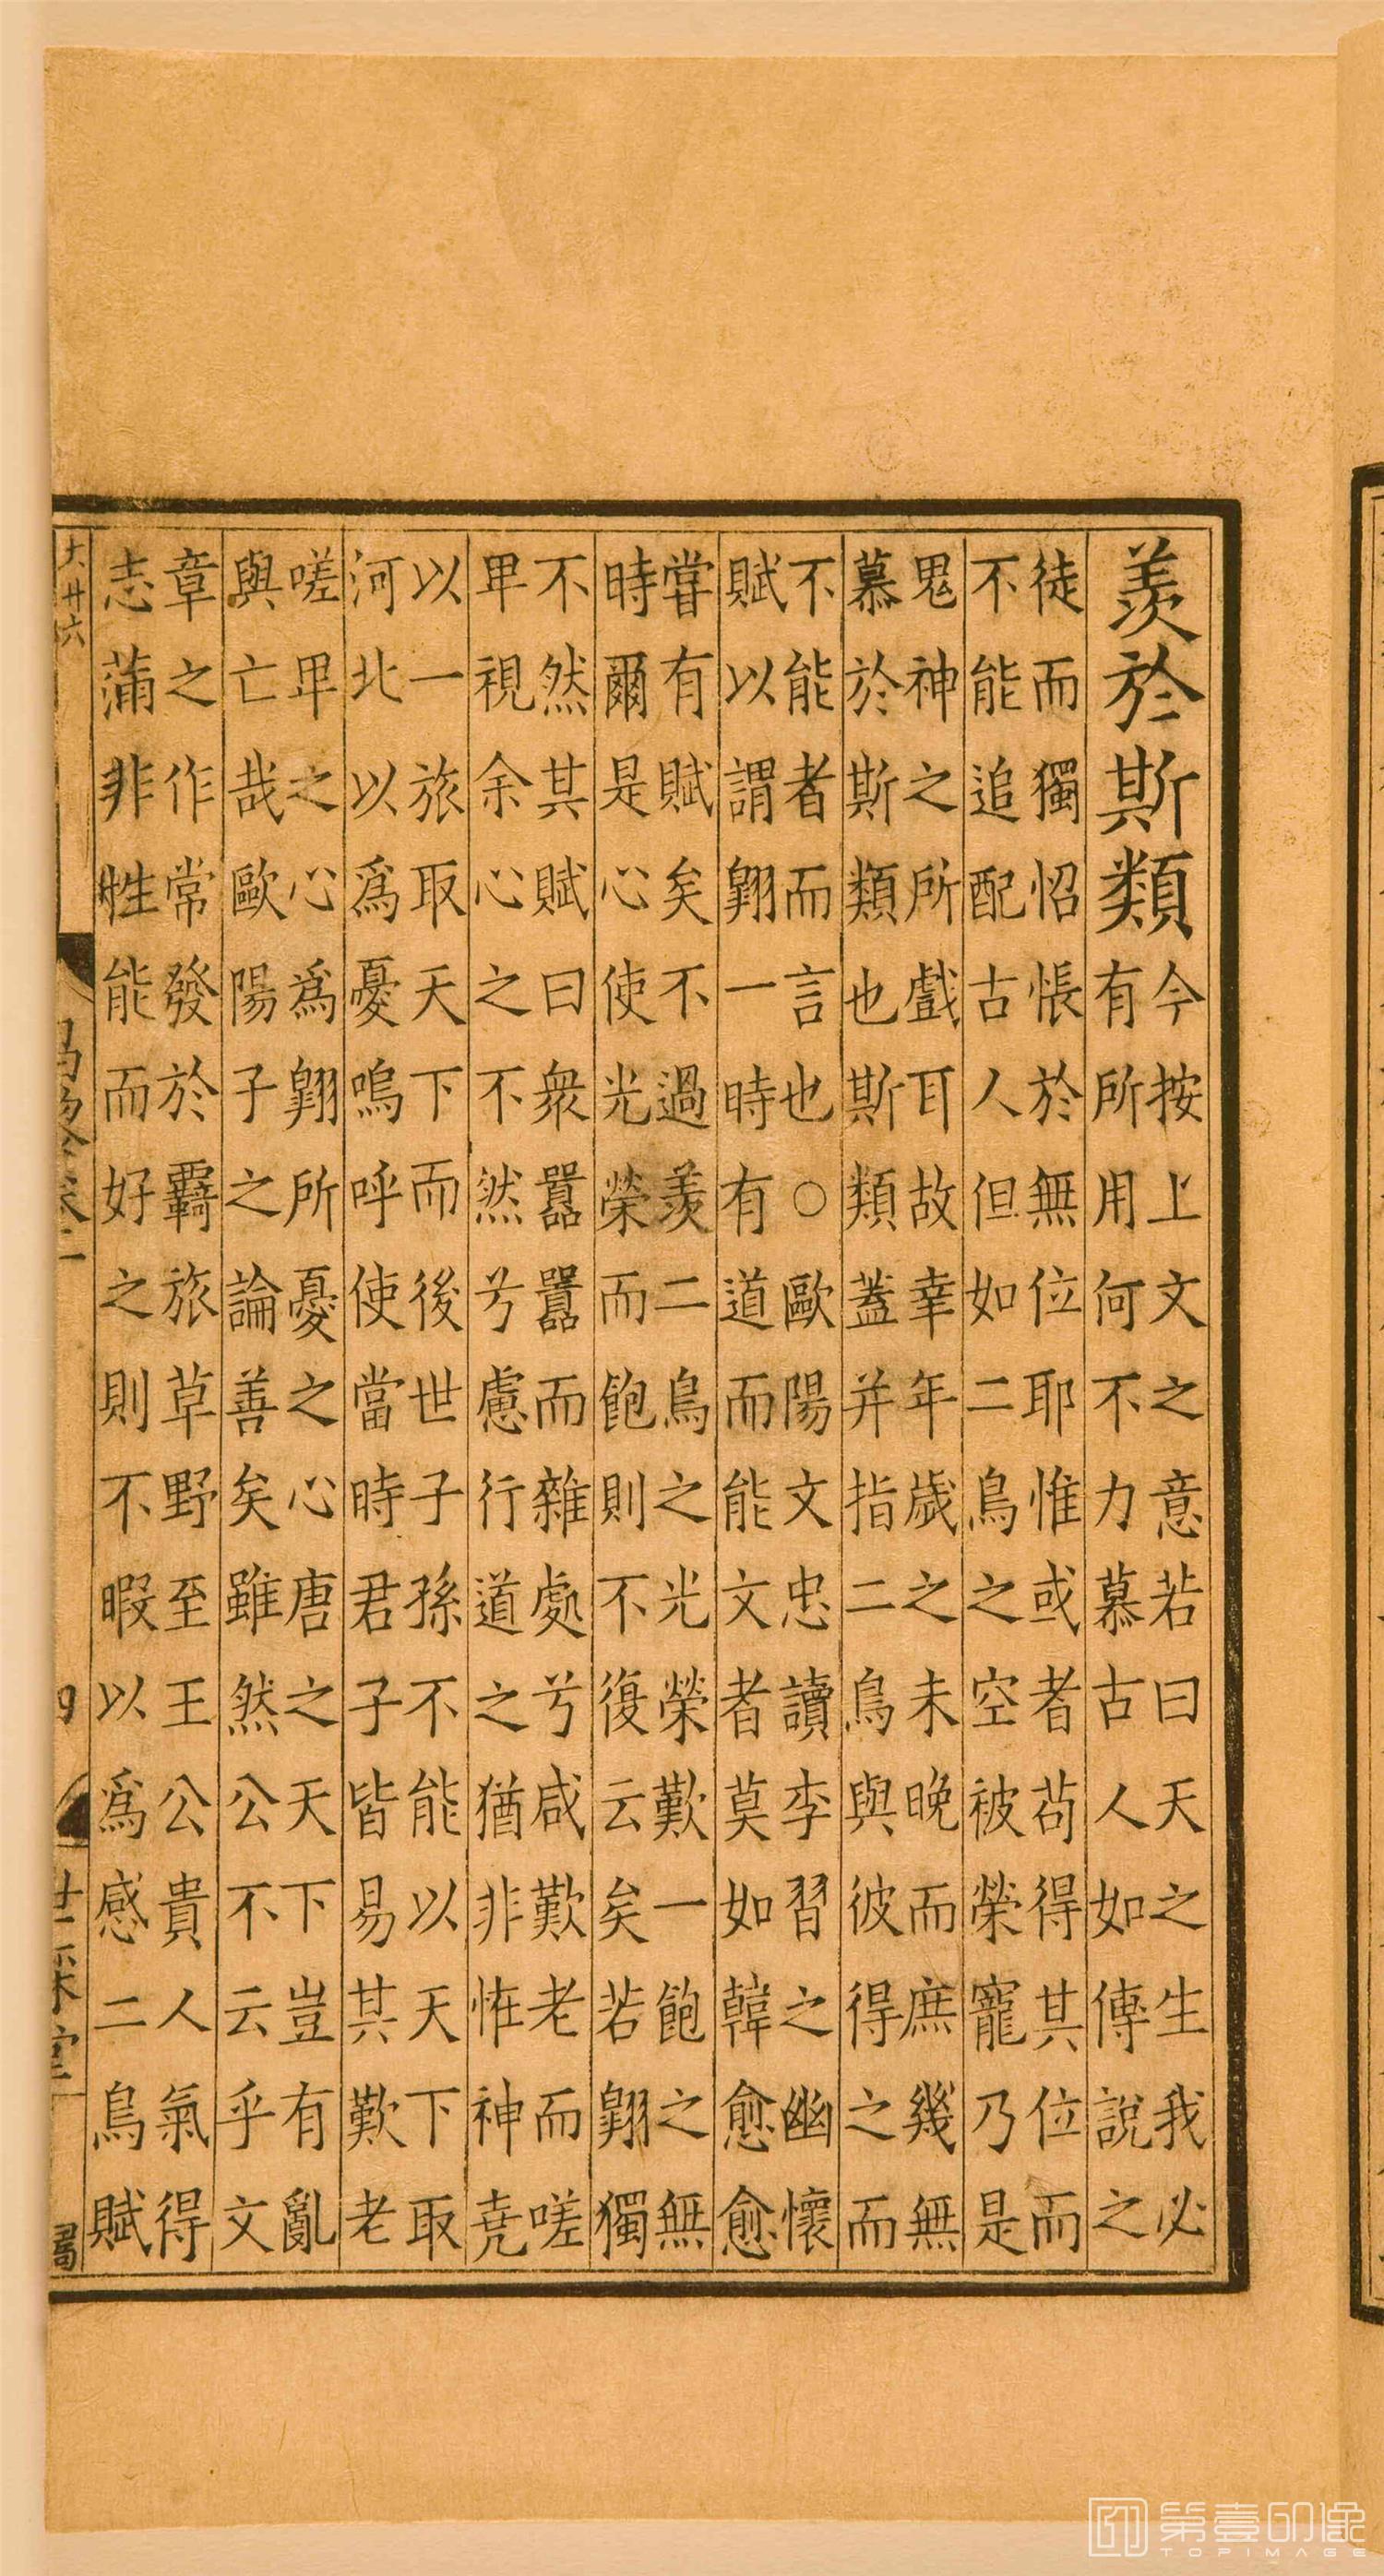 羨於斯類
今按上文之意若曰天之生我必
有所用何不力慕古人如傳說之
徒而獨怊悵於無位耶惟或者苟得其位而
不能追配古人但如二鳥之空被榮寵乃是
鬼神之所戲耳故幸年歲之未晚而庶幾無
慕於斯類也斯類蓋并指二鳥與彼得之而
不能者而言也○歐陽文忠讀李習之幽懷
賦以謂翺一時有道而能文者莫如韓愈愈
嘗有賦矣不過羨二鳥之光榮歎一飽之無
時爾是心使光榮而飽則不復云矣若翺獨
不然其賦曰衆囂囂而雜處兮咸歎老而嗟
卑視余心之不然兮慮行道之猶非怪神堯
以一旅取天下而後世子孫不能以天下取
河北以爲憂嗚呼使當時君子皆易其歎老
嗟卑之心爲翺所憂之心唐之天下豈有亂
與亡哉歐陽子之論善矣雖然公不云乎文
章之作常發於羇旅草野至王公貴人氣得
志滿非性能而好之則不暇以爲感二鳥賦
大廿六
昌黎卷一
四
世綵堂
第壹印像
TOPIMAGE